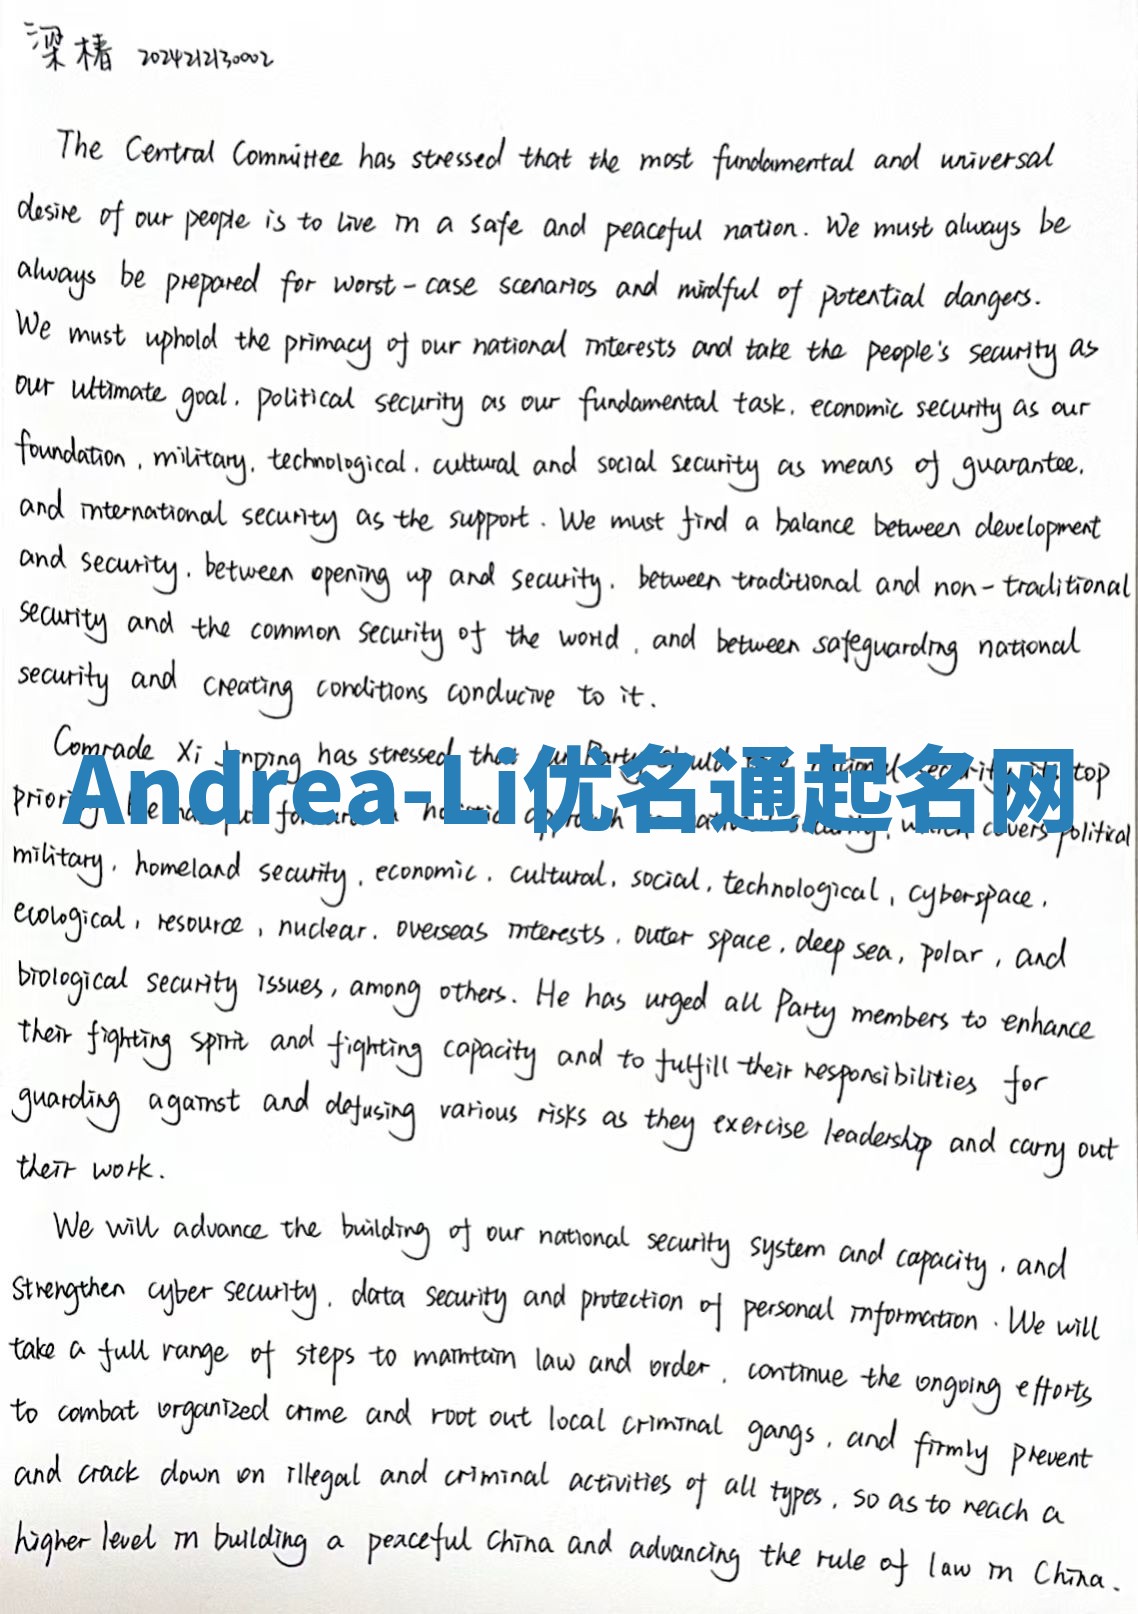 梁椿 2024212130002
The Central Committee has stressed that the most fundamental and universal
desire of our people is to live in a safe and peaceful nation. We must always be
always be prepared for worst-case scenarios and mindful of potential dangers.
We must uphold the primacy of our national interests and take the people's security as
our ultimate goal, political security as our fundamental task, economic security as our
foundation, military, technological, cultural and social security as means of guarantee,
and international security as the support. We must find a balance between development
and security, between opening up and security, between traditional and non-traditional
security and the common security of the world, and between safeguarding national
security and creating conditions conducive to it.
Comrade Xi Jinping has stressed that our Party should national security its top
Andrea-Li优名通起名网
priority. He has put forward a holistic approach to national security, which covers political
military, homeland security, economic, cultural, social, technological, cyberspace,
ecological, resource, nuclear, overseas interests, outer space, deep sea, polar, and
biological security issues, among others. He has urged all Party members to enhance
their fighting spirit and fighting capacity and to fulfill their responsibilities for
guarding against and defusing various risks as they exercise leadership and carry out
their work.
We will advance the building of our national security system and capacity, and
strengthen cyber security, data security and protection of personal information. We will
take a full range of steps to maintain law and order, continue the ongoing efforts
to combat organized crime and root out local criminal gangs, and firmly prevent
and crack down on illegal and criminal activities of all types, so as to reach a
higher level in building a peaceful China and advancing the rule of law in China.